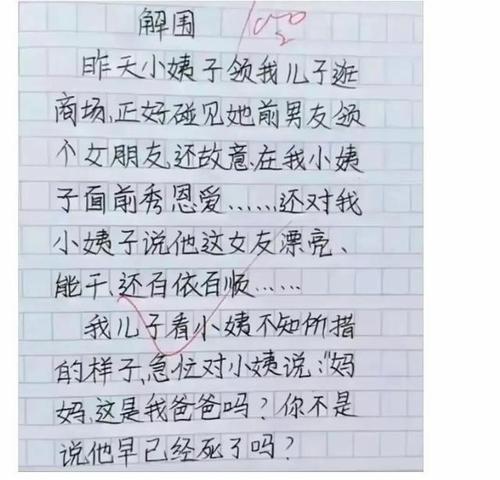 解围 100
2
昨天小姨子领我儿子逛
商场,正好碰见她前男友领
个女朋友,还故意在我小姨
子面前秀恩爱……还对我
小姨子说他这女友漂亮、
能干、还百依百顺……
我儿子看小姨不知所措
的样子,急忙对小姨说:"妈
妈,这是我爸爸吗?你不是
说他早已经死了吗?